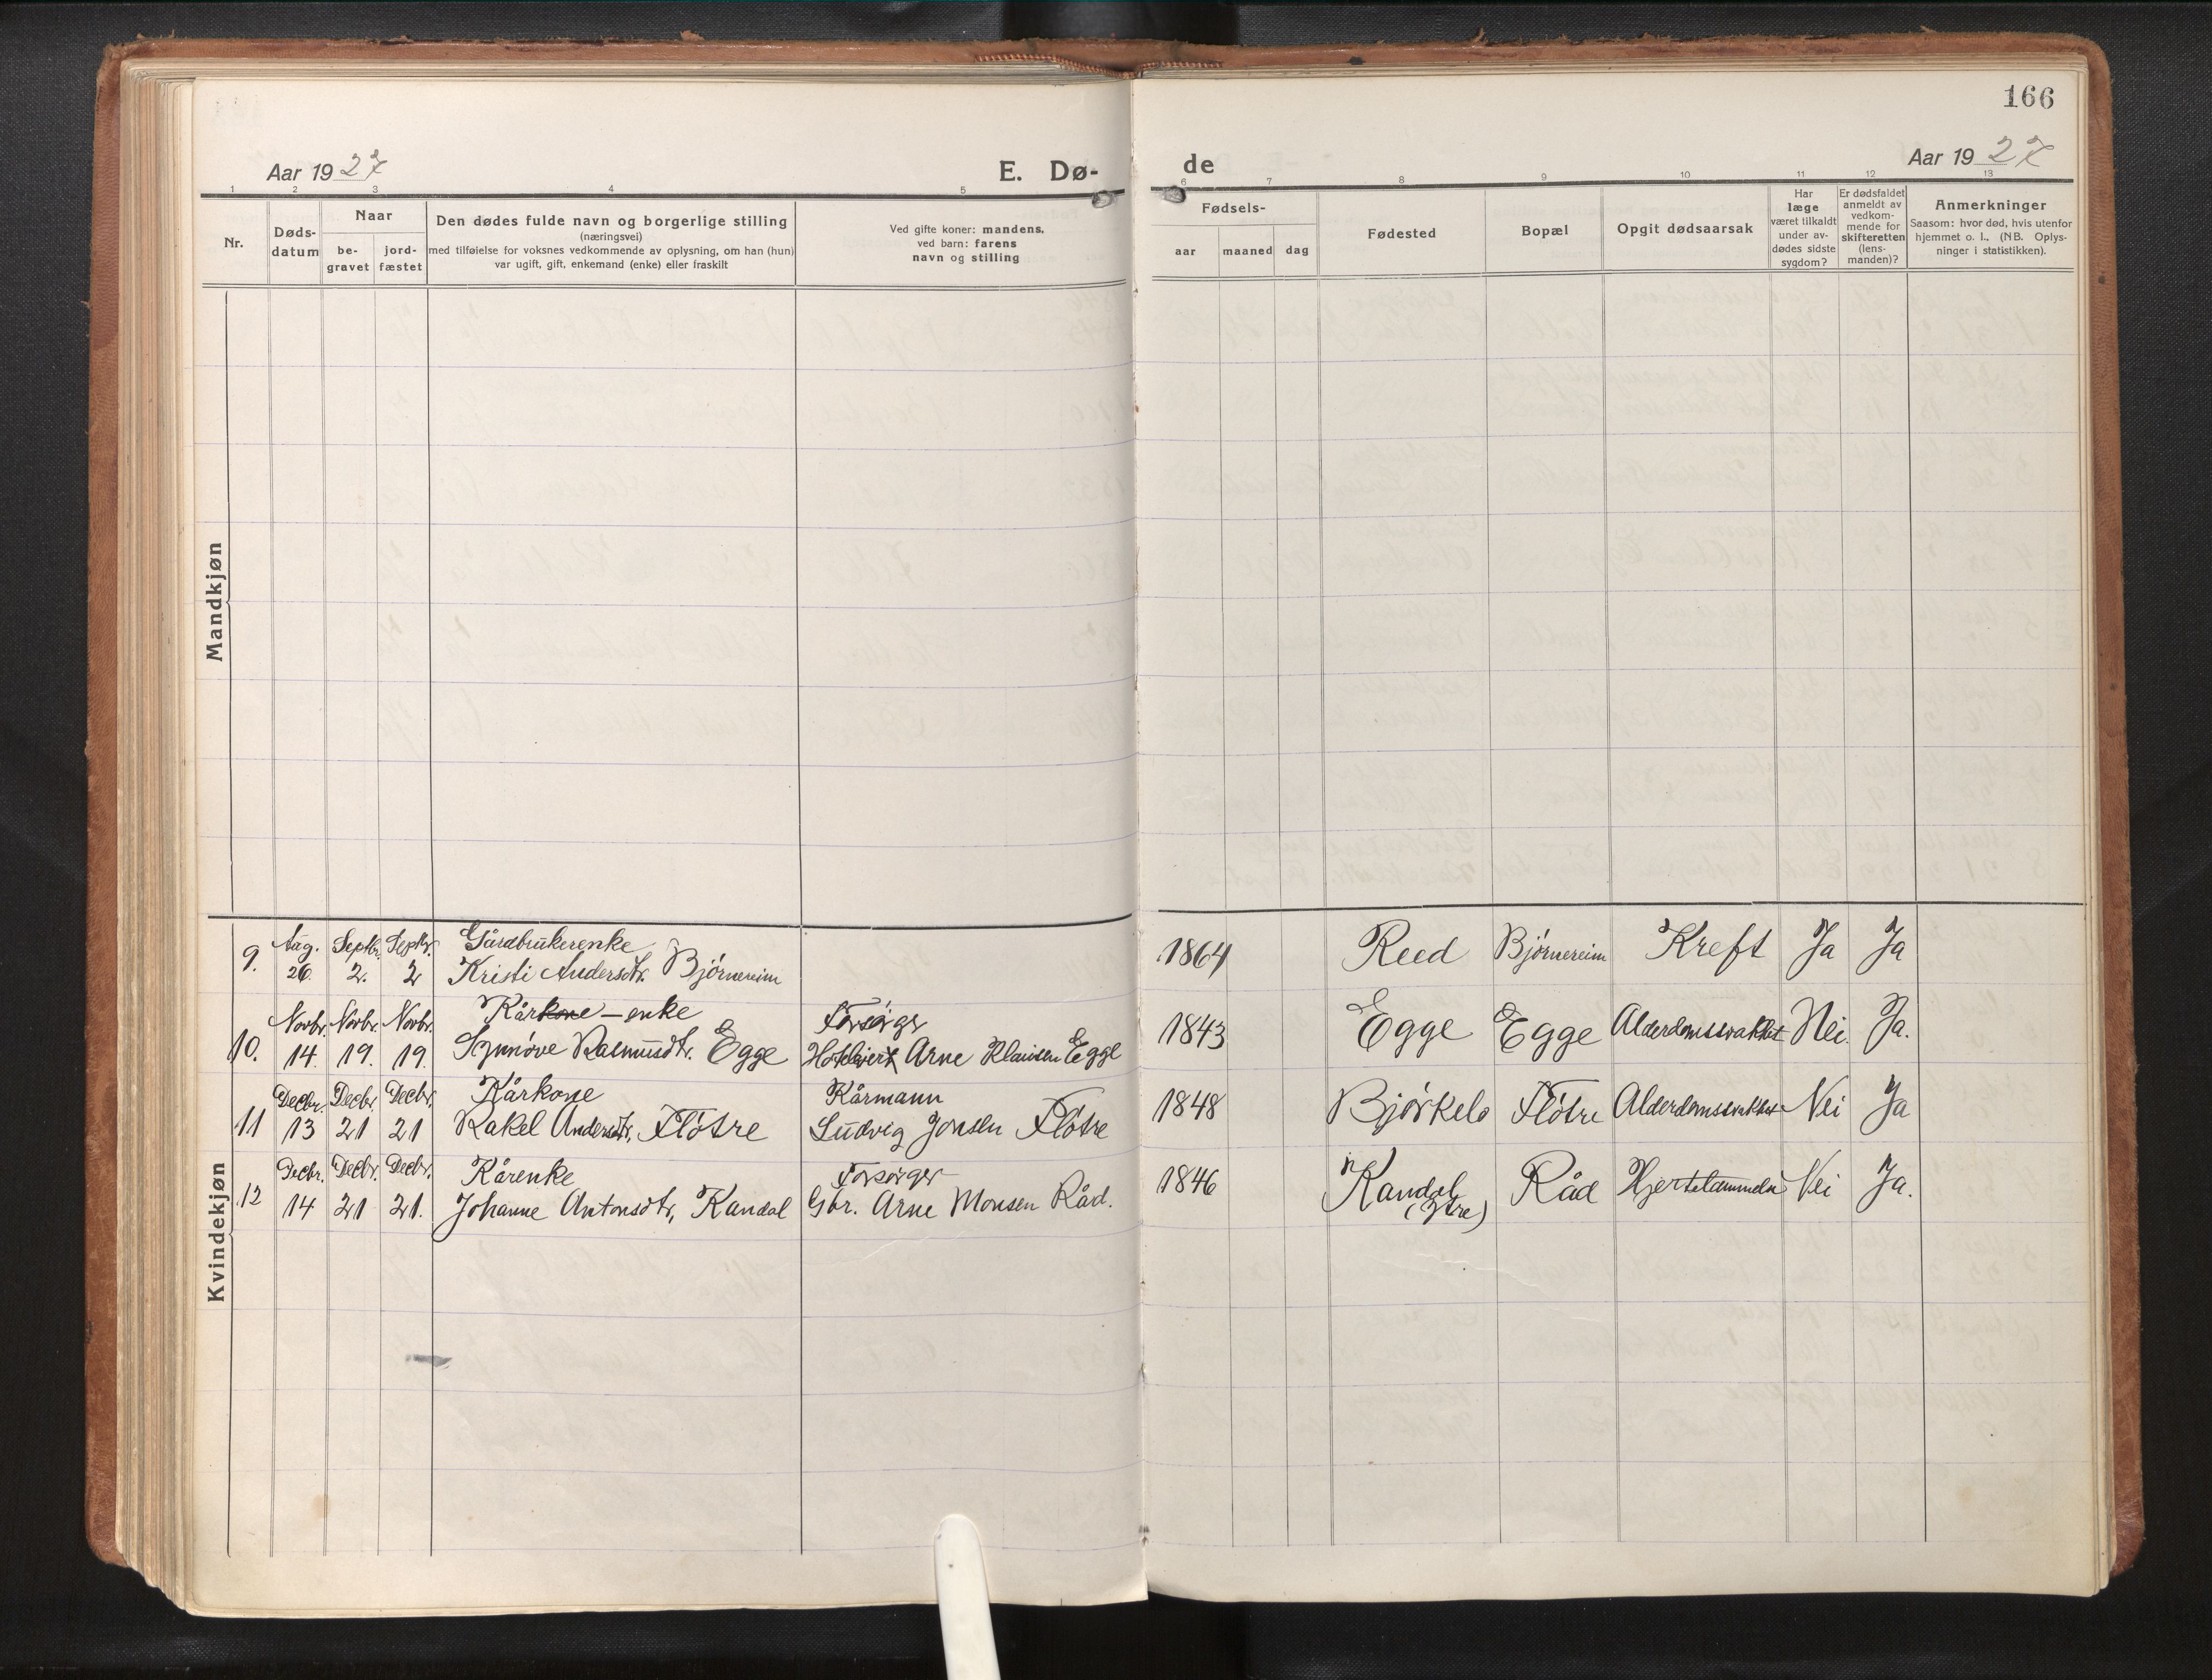 166
Aar 1927 E. Dø-
de Aar 1927
1 2 3 4 5
6 7 8 9 10 11 12 13
Nr.
Døds-
datum
Naar
be-
gravet
jord-
fæstet
Den dødes fulde navn og borgerlige stilling
(næringsvei)
med tilføielse for voksnes vedkommende av oplysning, om han (hun)
var ugift, gift, enkemand (enke) eller fraskilt
Ved gifte koner: mandens,
ved barn: farens
navn og stilling
Fødsels-
aar maaned dag
Fødested
Bopæl
Opgit dødsaarsak
Har
læge
været tilkaldt
under av-
dødes sidste
sygdom?
Er dødsfaldet
anmeldt av
vedkom-
mende for
skifteretten
(lens-
manden)?
Anmerkninger
Saasom: hvor død, hvis utenfor
hjemmet o. l., (NB. Oplys-
ninger i statistikken).
Mandkjøn
Kvindekjøn
Aug. Septbr. Septbr. Gårdbrukerenke
9. 26. 2. 2 Kristi Andersdtr. Bjørnereim 1864 Reed Bjørnereim Kreft Ja Ja
Novbr. Novbr. Novbr. Kårkone - enke Forsørger
10. 14. 19. 19. Synnøve Rasmusdtr. Egge Hotelvert Arne Klausen Egge 1843 Egge Egge Alderdomssvakhet Nei. Ja.
Decbr. Decbr. Decbr. Kårkone Kårmann
11 13 21 21 Rakel Andersdtr. Fløtre Ludvig Jonsen Fløtre 1848 Bjørkelo Fløtre Alderdomssvakhet Nei Ja
Decbr. Decbr. Decbr. Kårenke Forsørger
12 14 21 21. Johanne Antonsdtr. Kandal Gbr. Arne Monsen Råd. 1846 Kandal Råd Nei Ja.
(Ytre)